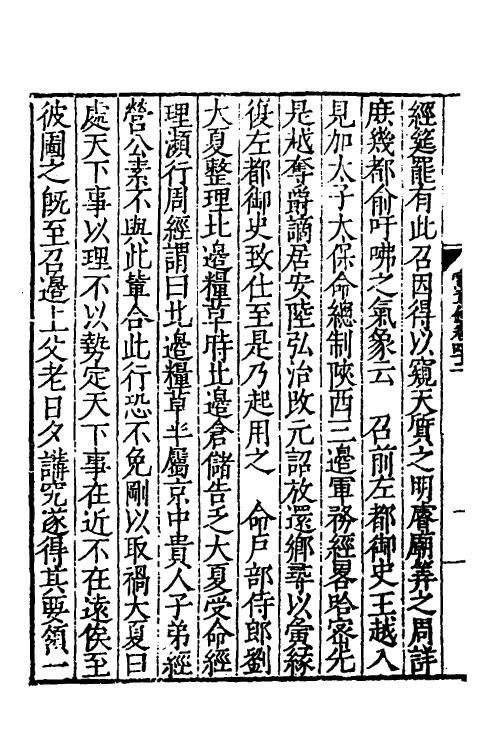 經筵罷有此召因得以窺天質之明睿廟筭之周詳
庶幾都俞吁咈之氣象云　召前左都御史王越入
見加太子太保命總制陝西三邊軍務經畧哈密先
是越奪爵謫居安陸弘治改元詔放還鄉尋以夤緣
復左都御史致仕至是乃起用之　命戶部侍郎劉
大夏整理北邊糧草時北邊倉儲告乏大夏受命經
理瀕行周經謂曰北邊糧草半屬京中貴人子弟經
營公素不與此輩合此行恐不免剛以取禍大夏曰
處天下事以理不以勢定天下事在近不在遠俟至
彼圖之既至召邊上父老日夕講究遂得其要領一